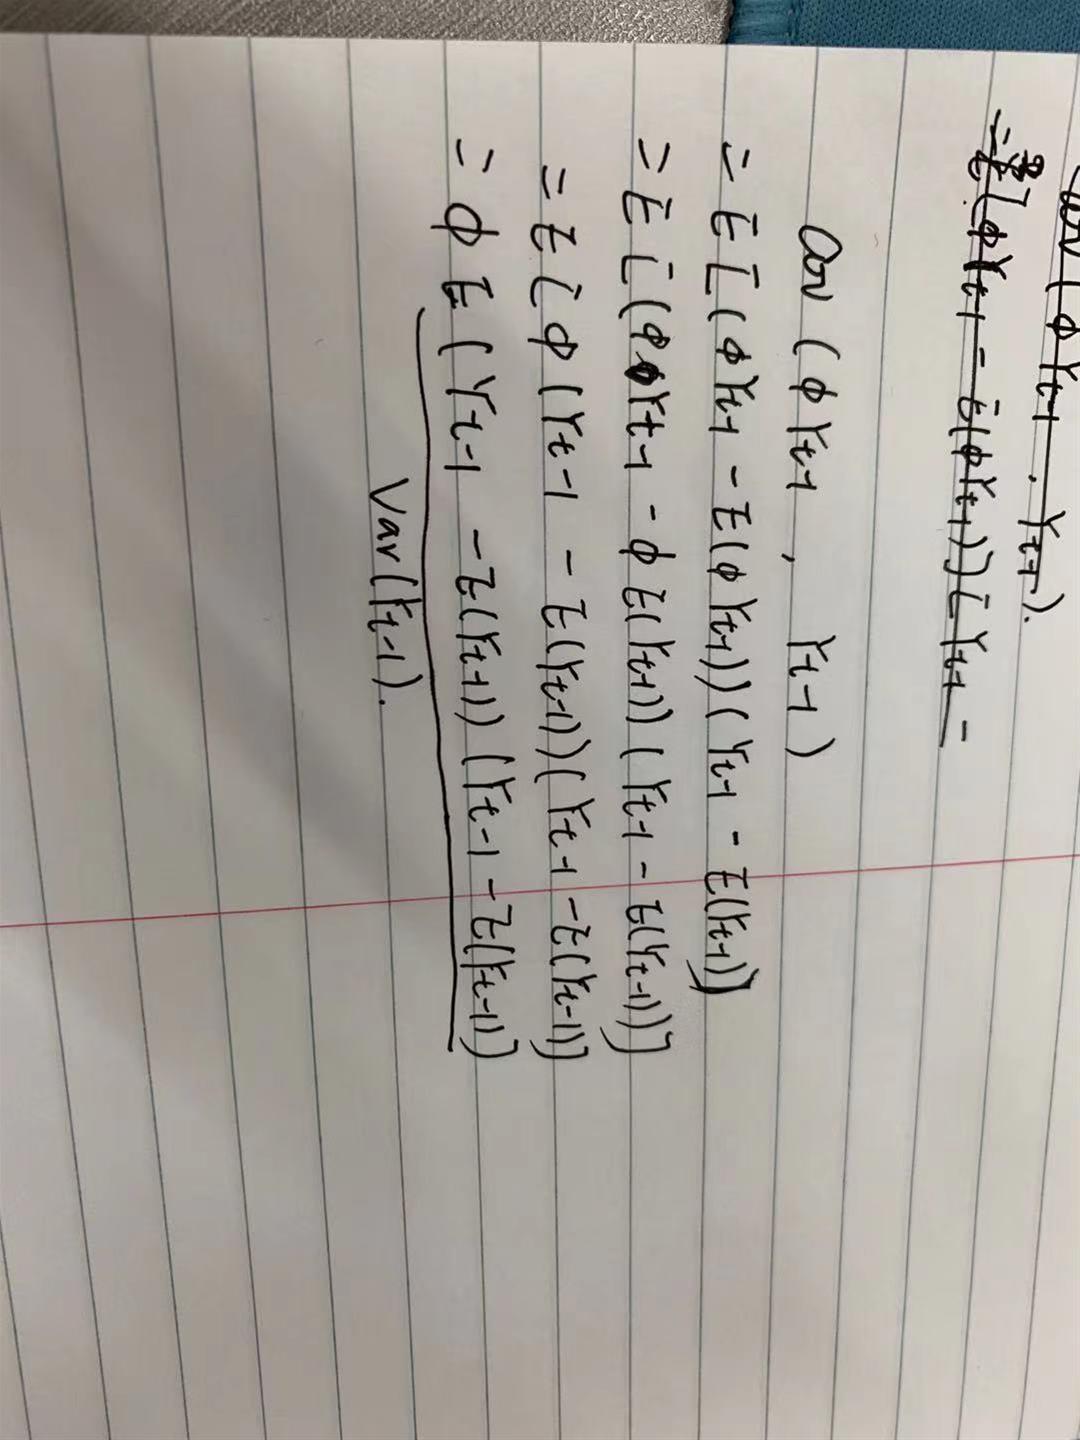 Cov(ϕYt-1, Yt-1).
=E[ϕYt-1 - E(ϕYt-1)][Yt-1 -
Cov(ϕYt-1, Yt-1)
= E[(ϕYt-1 - E(ϕYt-1))(Yt-1 - E(Yt-1))
= E[(ϕYt-1 - ϕE(Yt-1))(Yt-1 - E(Yt-1))]
= E[ϕ(Yt-1 - E(Yt-1))(Yt-1 - E(Yt-1)]
= ϕE(Yt-1 - E(Yt-1))(Yt-1 - E(Yt-1))
Var(Yt-1).